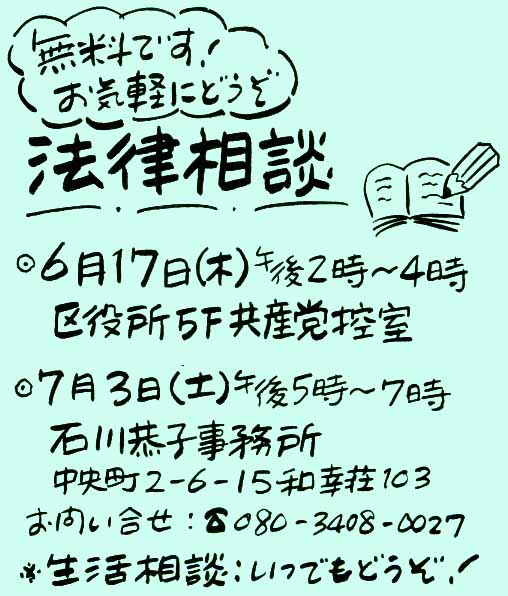 無料です!
お気軽にどうぞ
法律相談
⊙6月17日(木)午後2時~4時
区役所5F共産党控室
⊙7月3日(土)午後5時~7時
石川恭子事務所
中央町2-6-15和幸荘103
お問い合せ:☎080-3408-0027
*生活相談:いつでもどうぞ!